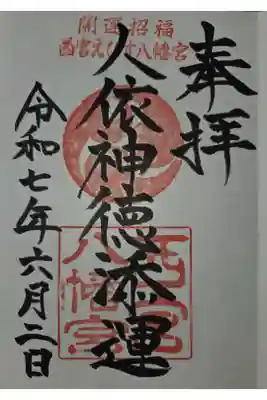 奉拝
開運招福
西宮えびす八幡宮
人依神徳添運
西宮
八幡宮
令和七年六月二日